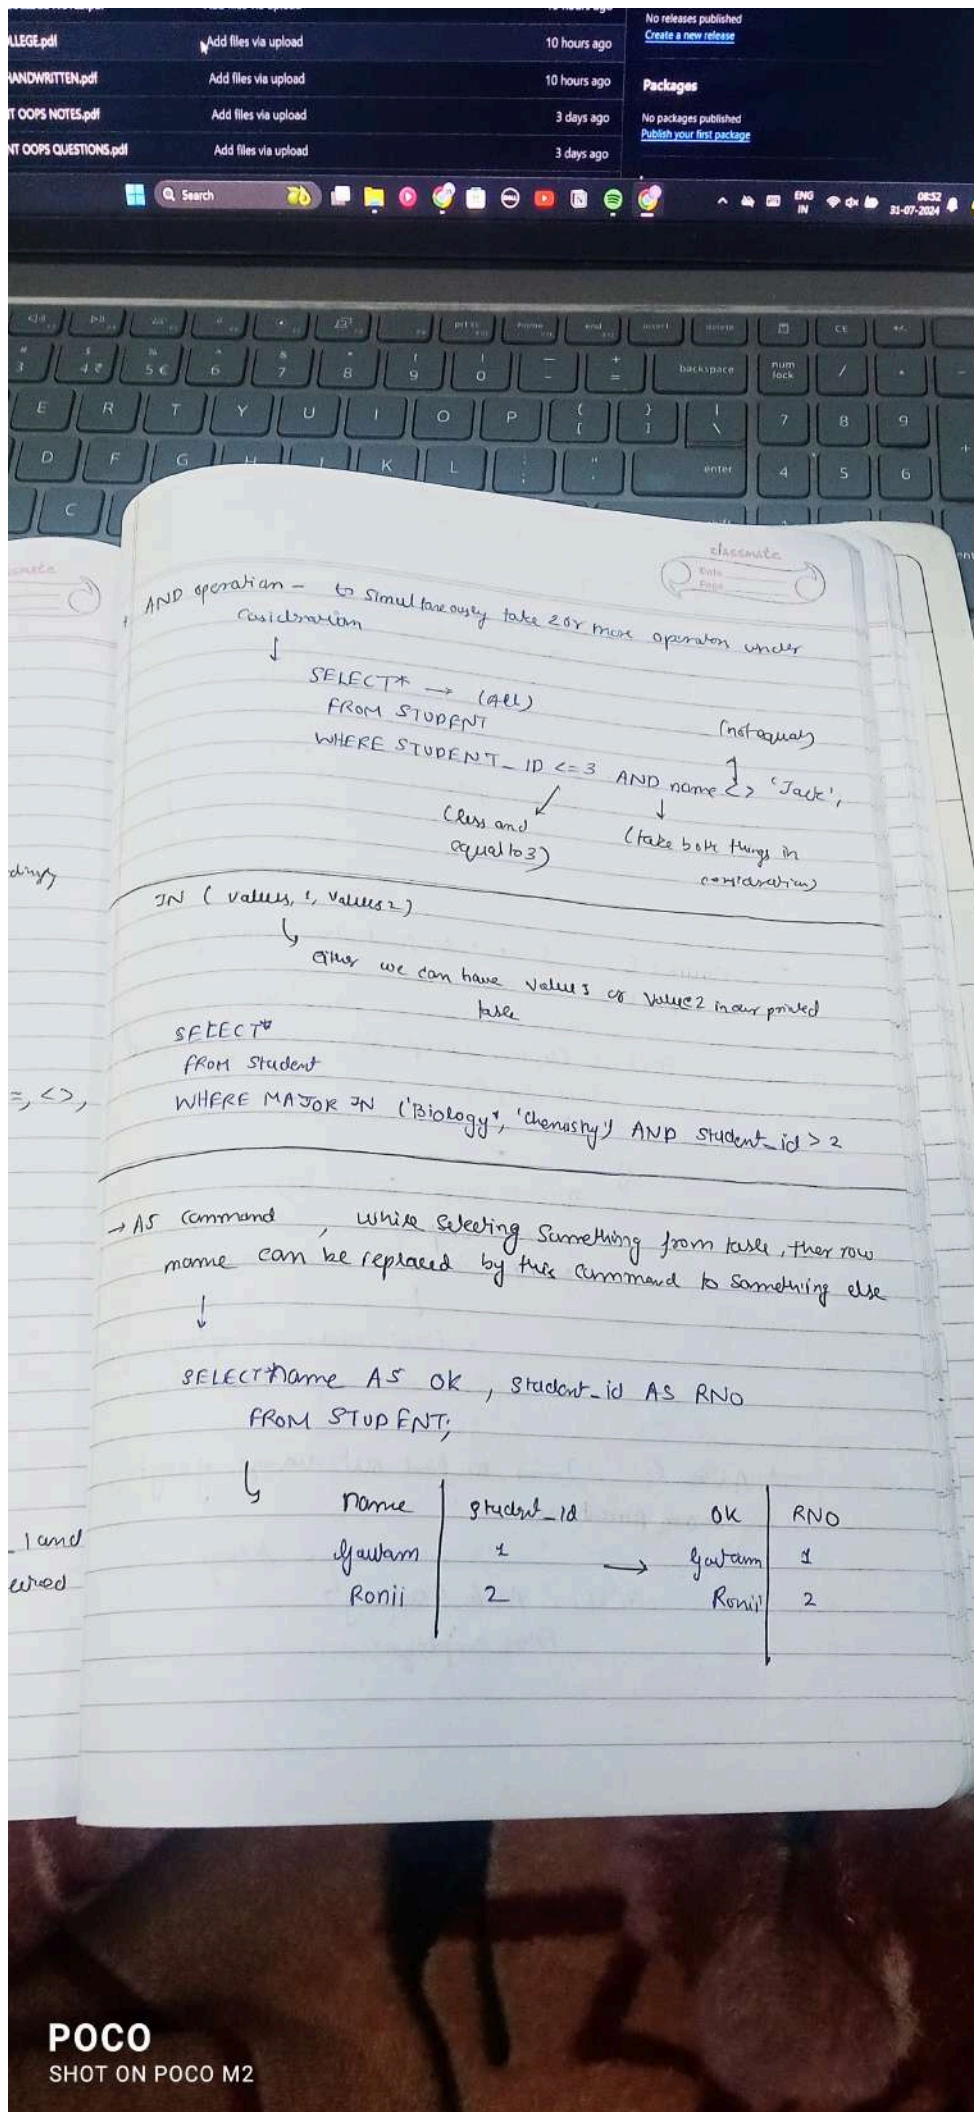 LLEGE.pdf Add files via upload 10 hours ago
HANDWRITTEN.pdf Add files via upload 10 hours ago
T OOPS NOTES.pdf Add files via upload 3 days ago
NT OOPS QUESTIONS.pdf Add files via upload 3 days ago
No releases published
Create a new release
Packages
No packages published
Publish your first package
Search
ENG
IN
08:52
31-07-2024
prt sc home end insert delete CE
3 4 ₹ 5 € 6 7 8 9 0 - = backspace num lock / *
E R T Y U I O P { [ } ] | \ 7 8 9
D F G H J K L ; enter 4 5 6
C
classmate
Date
Page
AND operation - to simultaneously take 2 or more operators under
casidration
↓
SELECT* → (ALL)
FROM STUDENT
(not equal)
WHERE STUDENT_ID <=3 AND name <> 'Jack';
(less and
equal to 3)
(take both things in
considration)
dingly
IN ( values, 1, values 2)
either we can have value 1 or value 2 in our printed
table
SELECT*
FROM Student
=, <>,
WHERE MAJOR IN ('Biology', 'Chemistry') AND student_id > 2
→ AS command , while selecting something from table, ther row
name can be replaced by this command to something else
↓
SELECT*name AS OK , student_id AS RNO
FROM STUDENT;
name student_id OK RNO
Gautam 1 → Gautam 1
Ronii 2 Ronii 2
_ 1 and
POCO
SHOT ON POCO M2